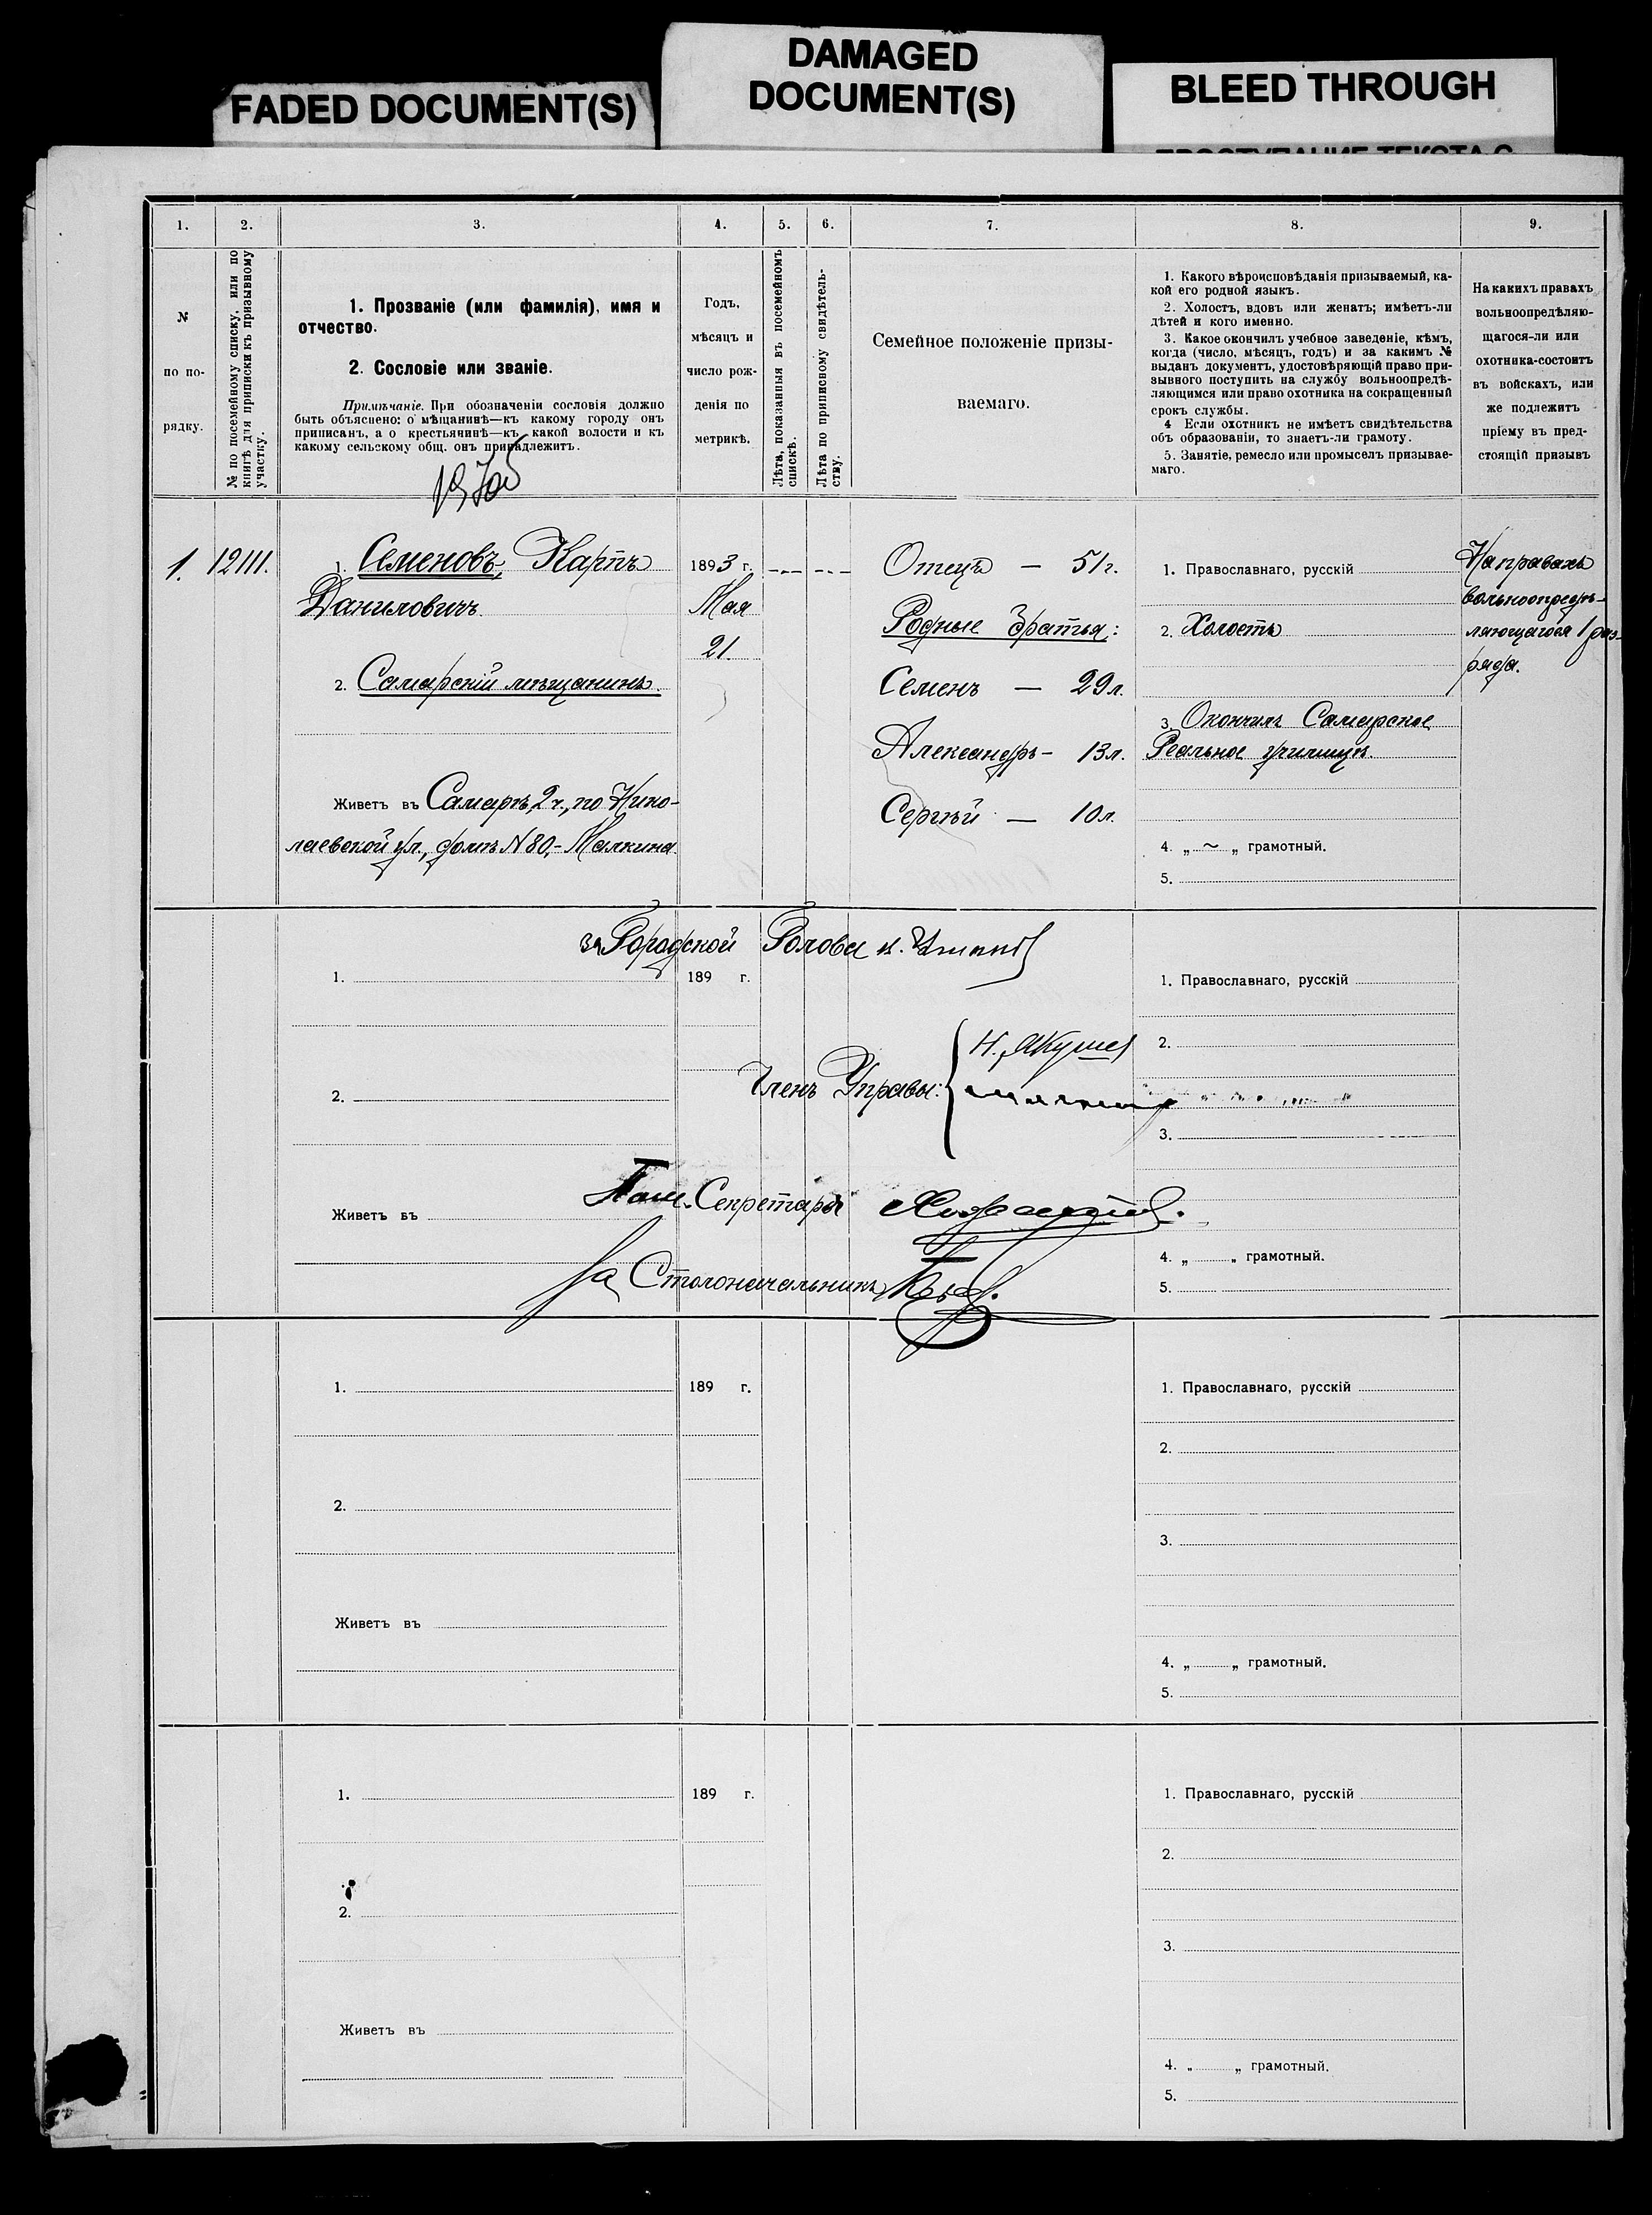 FADED DOCUMENT(S)
DAMAGED
DOCUMENT(S)
BLEED THROUGH
1.
2.
3.
4.
5.
6.
7.
8.
9.
№
по по-
рядку.
№ по посемейному списку, или по
книгѣ для приписки къ призывному
участку.
1. Прозваніе (или фамилія), имя и
отчество.
2. Сословіе или званіе.
Примѣчаніе. При обозначеніи сословія должно
быть объяснено: о мѣщанинѣ—къ какому городу онъ
приписанъ, а о крестьянинѣ—къ какой волости и къ
какому сельскому общ. онъ принадлежитъ.
Годъ,
мѣсяцъ и
число рож-
денія по
метрикѣ.
Лѣта, показанныя въ посемейномъ
спискѣ.
Лѣта по приписному свидѣтель-
ству.
Семейное положеніе призы-
ваемаго.
1. Какого вѣроисповѣданія призываемый, ка-
кой его родной языкъ.
2. Холостъ, вдовъ или женатъ; имѣетъ-ли
дѣтей и кого именно.
3. Какое окончилъ учебное заведеніе, кѣмъ,
когда (число, мѣсяцъ, годъ) и за какимъ №
выданъ документъ, удостовѣряющій право при-
зывного поступить на службу вольноопредѣ-
ляющимся или право охотника на сокращенный
срокъ службы.
4 Если охотникъ не имѣетъ свидѣтельства
объ образованіи, то знаетъ-ли грамоту.
5. Занятіе, ремесло или промыселъ призывае-
маго.
На какихъ правахъ
вольноопредѣляю-
щагося-ли или
охотника-состоитъ
въ войскахъ, или
же подлежитъ
пріему въ пред-
стоящій призывъ
1. 12111.
1. Семеновъ, Карпъ
Даниловичъ
2. Самарскій мѣщанинъ
Живетъ въ Самарѣ, 2ч., по Нико-
лаевской ул., домъ №80,- Малкина.
1893 г.
Мая
21.
Отецъ — 51г.
Родные братья:
Семенъ — 29л.
Александръ - 13л.
Сергѣй — 10л.
1. Православнаго, русскій
2. Холостъ
3. Окончилъ Самарское
Реальное училище.
4. „ ~ „ грамотный.
5.
На правахъ
вольноопредѣ-
ляющагося 1 раз-
ряда.
За Городской Голова
1.
189 г.
1. Православнаго, русскій
2.
Членъ Управы:
2.
3.
Пом. Секретаря
Живетъ въ
4. „ „ грамотный.
За Столоначальника
5.
1.
189 г.
1. Православнаго, русскій
2.
2.
3.
Живетъ въ
4. „ „ грамотный.
5.
1.
189 г.
1. Православнаго, русскій
2.
2.
3.
Живетъ въ
4. „ „ грамотный.
5.